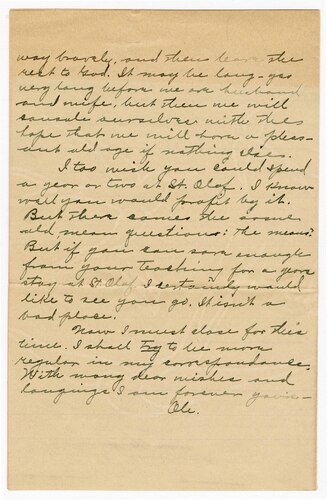 way bravely, and then leave the
rest to God. It may be long - yes
very long before we are husband
and wife, but then we will
console ourselves with the
hope that we will have a pleas-
ant old age if nothing else.
I too wish you could spend
a year or two at St. Olaf. I know
well you would profit by it.
But then comes the same
old mean question: the means?
But if you can save enough
from your teaching for a years
stay at St. Olaf I certainly would
like to see you go. It isn't a
bad place.
Now I must close for this
time. I shall try to be more
regular in my correspondance.
With many dear wishes and
longings I am forever yours -
Ole.